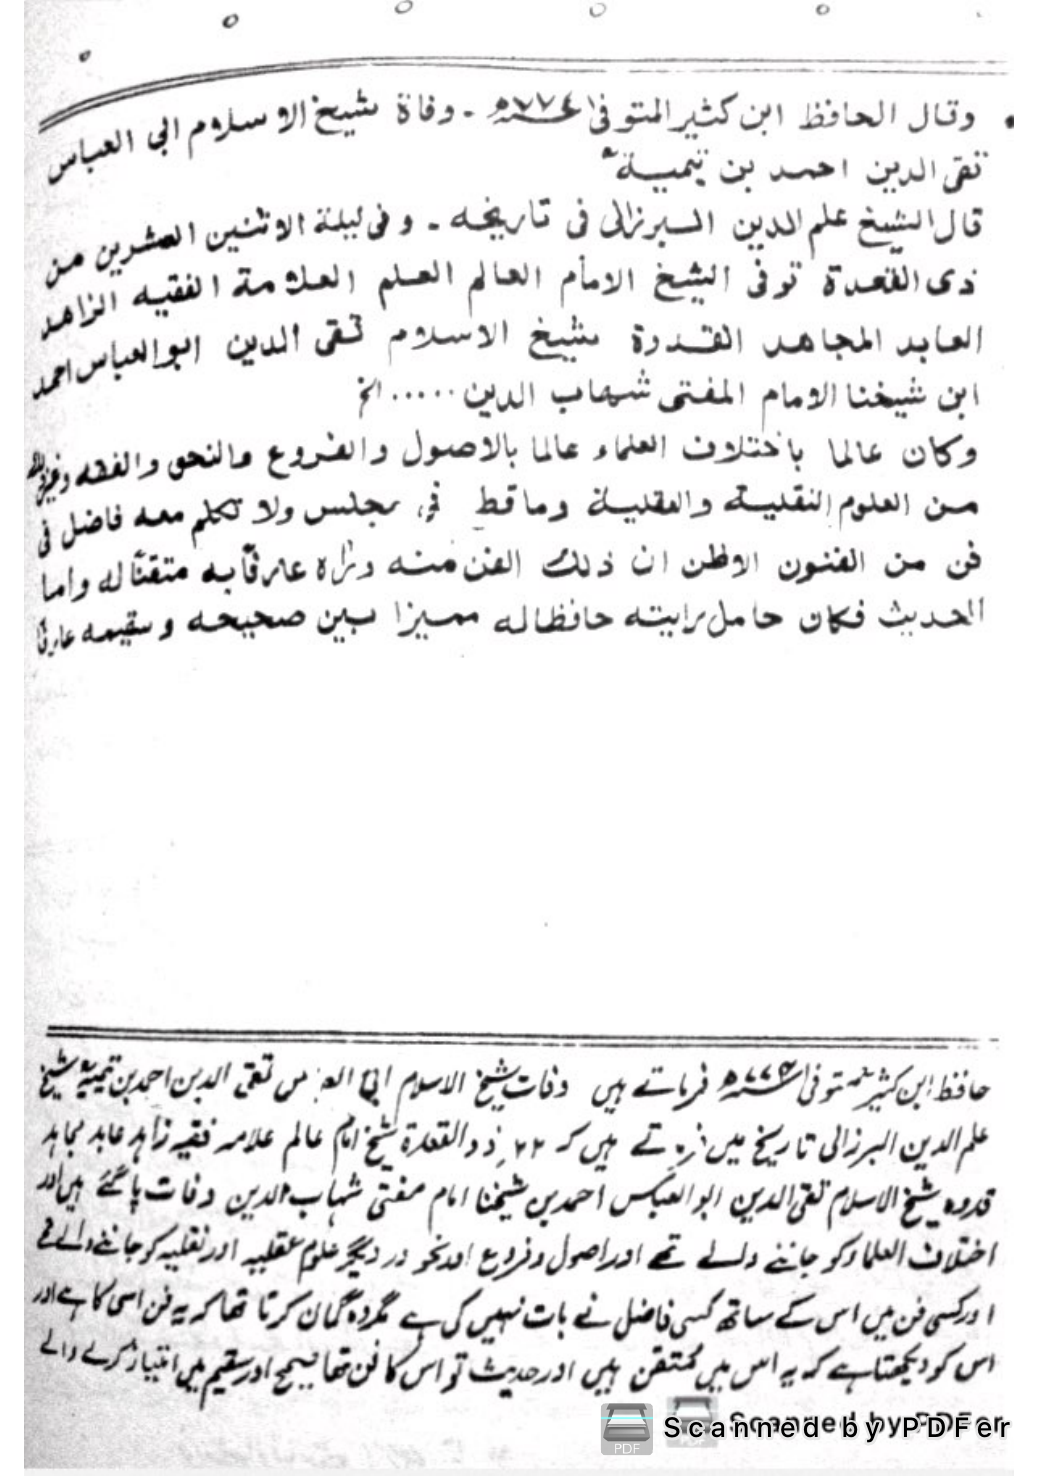 وقال الحافظ ابن كثير المتوفى ٧٧٤ھ ـ وفاة شيخ الاسلام ابى العباس
تقى الدين احمد بن تيمية
قال الشيخ علم الدين البرزالى فى تاريخه ـ وفى ليلة الاثنين العشرين من
ذى القعدة توفى الشيخ الامام العالم العلم العلامة الفقيه الزاهد
العابد المجاهد القدوة شيخ الاسلام تقى الدين ابو العباس احمد
ابن شيخنا الامام المفتى شهاب الدين ..... الخ
وكان عالما باختلاف العلماء عالما بالاصول والفروع والنحو والفقه وغير
من العلوم النقلية والعقلية وما قط فى مجلس ولا تكلم معه فاضل فى
فن من الفنون الاظن ان ذلك الفن منه وراه عارفًا به متقنًا له واما
الحديث فكان حامل رايته حافظا له مميزا بين صحيحه وسقيمه عارفًا
حافظ ابن کثیر متوفی ۷۷۴ھ فرماتے ہیں وفات شیخ الاسلام ابی العباس تقی الدین احمد بن تیمیہ شیخ
علم الدین البرزالی تاریخ میں تے ہیں کہ ۲۲ ذوالقعدۃ شیخ امام عالم علامہ فقیہ زاہد عابد مجاہد
قدوہ شیخ الاسلام تقی الدین ابو العباس احمد بن شیخنا امام مفتی شہاب الدین وفات پاگئے ہیں اور
اختلاف العلماء کو جاننے والے تھے اور اصول وفروع اور نحو در دیگر علوم عقلیہ اور نقلیہ کو جاننے والے تھے
اور کسی فن میں اس کے ساتھ کسی فاضل نے بات نہیں کی ہے مگر وہ گمان کرتا تھا کہ یہ فن اسی کا ہے اور
اس کو دیکھتا ہے کہ یہ اس میں متقن ہیں اور حدیث تو اس کا فن تھا صحیح اور سقیم میں امتیاز کرنے والے
Scanned by PDFer
Scanned by PDFer
PDF